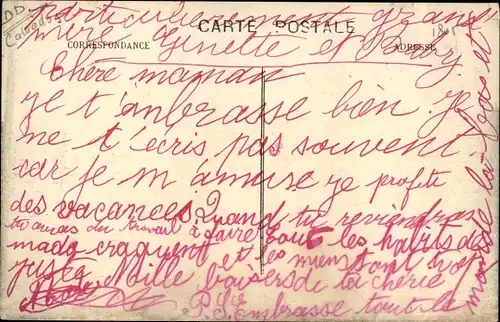 CARTE POSTALE
CORRESPONDANCE
ADRESSE
Calvados
particulièrement grand
mère Ginette et
Chère maman
je t'enbrasse bien. Je
ne t'écris pas souvent
car je m'amuse je profite
des vacances Quand tu reviendras
tu auras du travail à faire tout les habits de
mado craquent et les miens sont
juste Mille baisers de ta chérie
P.S. Embrasse tout le
monde